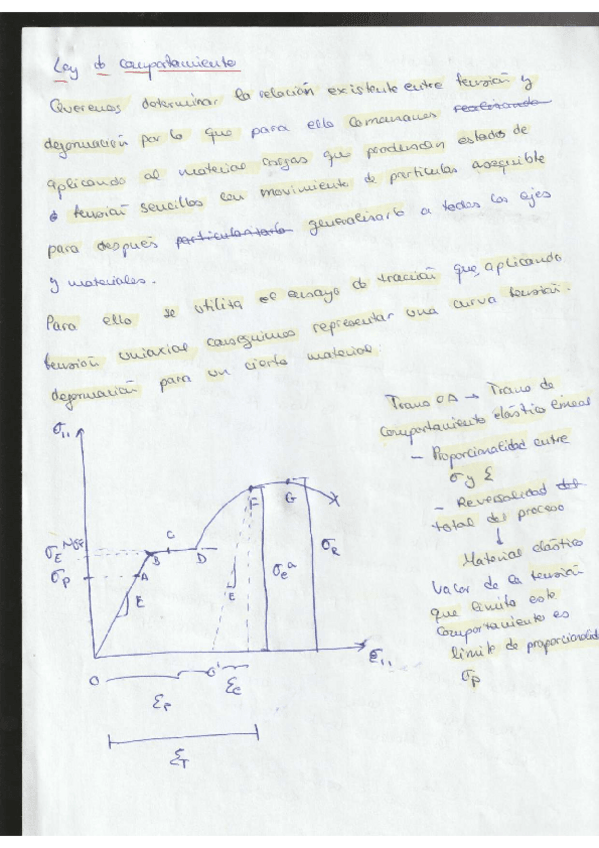 Ley de comportamiento
Queremos determinar la relación existente entre tensión y
deformación por lo que para ello comenzamos realizando
aplicando al material cargas que produzcan estados de
tensión sencillos con movimiento de partículas asequible
para después particularizarlo generalizarlo a todos los ejes
y materiales.
Para ello se utiliza el ensayo de tracción que, aplicando
tensión uniaxial conseguimos representar una curva tensión-
deformación para un cierto material:
Tramo OA → Tramo de
comportamiento elástico lineal
- Proporcionalidad entre
σ y ε
- Reversalidad del
total del proceso
↓
Material elástico
Valor de la tensión
que limita este
comportamiento es
límite de proporcionalid
σp
σ11
σE
σp
A
B
C
D
E
E
F
G
σe^a
σR
ε11
O
O'
εp
εe
εT